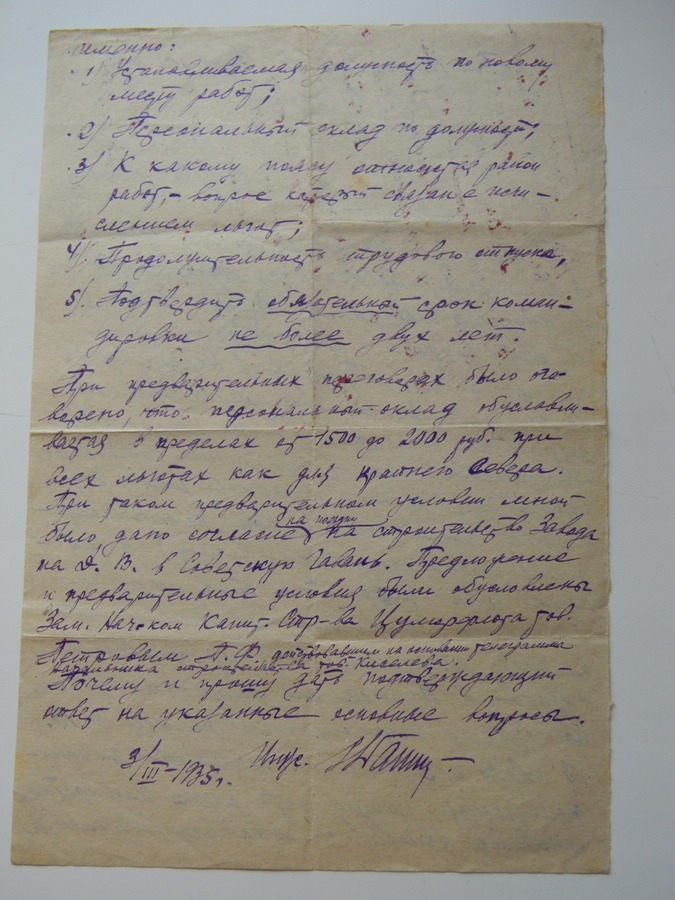 именно:
1) Устанавливаемая должность по новому
месту работ;
2) Персональный оклад по должности;
3) К какому поясу относится район
работ, – вопрос который связан с исчи-
слением льгот;
4) Продолжительность трудового отпуска;
5) Подтвердить обязательный срок коман-
дировки не более двух лет.
При предварительных переговорах было ого-
ворено, что персональный оклад обуславли-
вается в пределах от 1500 до 2000 руб. при
всех льготах как для крайнего Севера.
При таком предварительном условии мной
было, дано согласие на поездку на строительство Завода
на Д. В. в Советскую Гавань. Предложение
и предварительные условия были обусловлены
Зам. Начском Капит. Стр-ва Цумор тов.
Петровым А. Ф действовавшим на основании телеграммы
начальника строительства тов. Киселева.
Почему и прошу дать подтверждающий
ответ на указанные основные вопросы.
3/III–1935г. Инж.